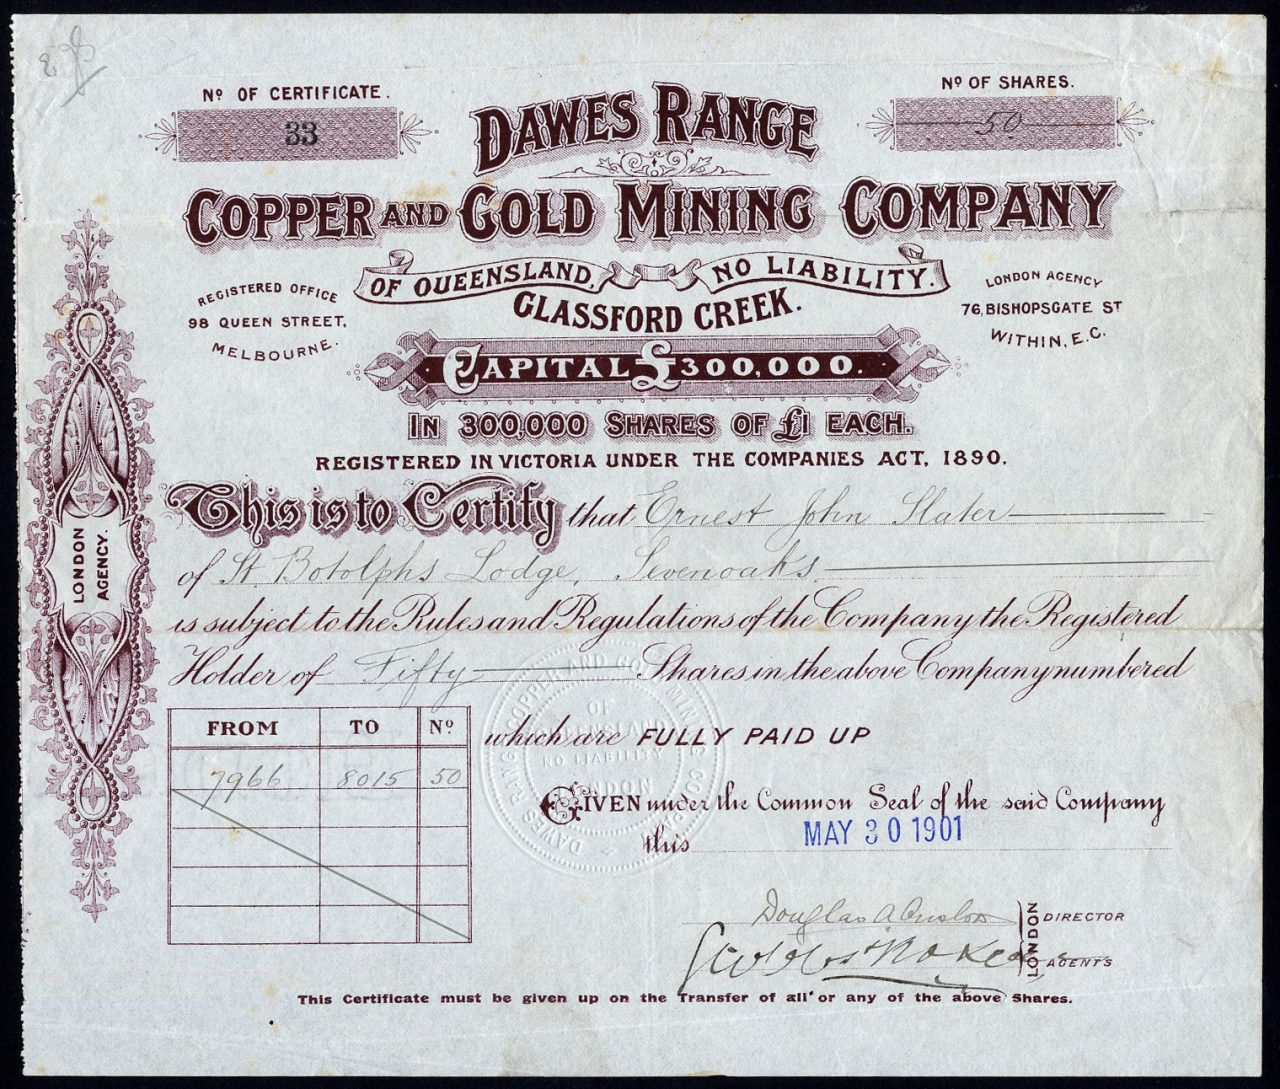 Nº OF CERTIFICATE.
33
Nº OF SHARES.
50
DAWES RANGE
COPPER AND GOLD MINING COMPANY
OF QUEENSLAND, NO LIABILITY.
GLASSFORD CREEK.
REGISTERED OFFICE
98 QUEEN STREET,
MELBOURNE.
LONDON AGENCY
76, BISHOPSGATE ST
WITHIN, E.C.
CAPITAL £300,000.
IN 300,000 SHARES OF £1 EACH.
REGISTERED IN VICTORIA UNDER THE COMPANIES ACT, 1890.
This is to Certify that Ernest John Slater
of St Botolphs Lodge, Sevenoaks
is subject to the Rules and Regulations of the Company the Registered
Holder of Fifty Shares in the above Company numbered
LONDON
AGENCY.
FROM TO Nº
7966 8015 50
which are FULLY PAID UP
GIVEN under the Common Seal of the said Company
this MAY 30 1901
DAWES RANGE COPPER AND GOLD MINING COMPANY
OF
QUEENSLAND
NO LIABILITY
LONDON
Douglas A
LONDON
DIRECTOR
AGENTS
This Certificate must be given up on the Transfer of all or any of the above Shares.